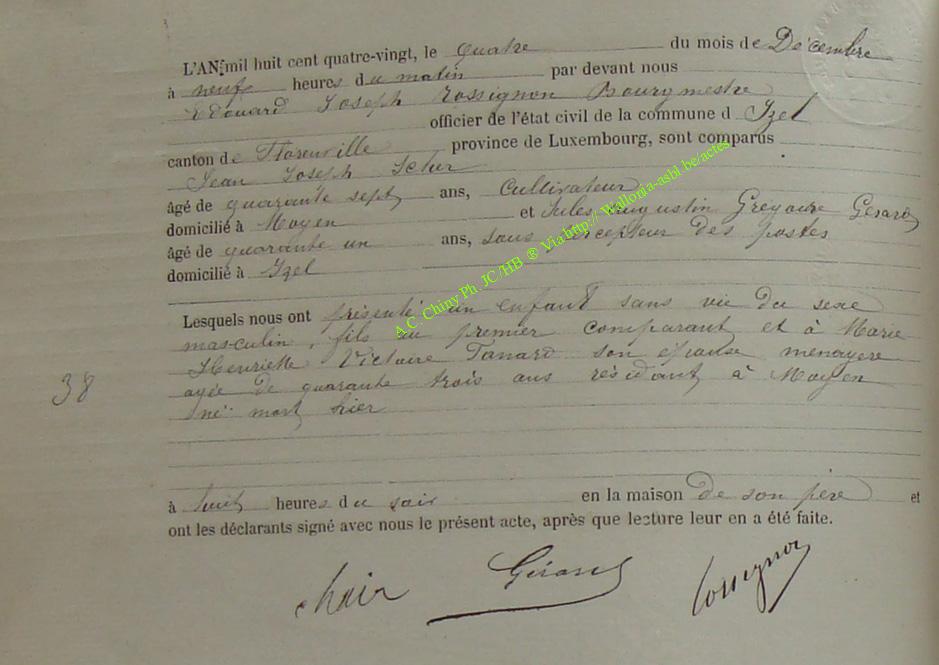 L'AN mil huit cent quatre-vingt, le quatre du mois de Décembre
à neuf heures du matin par devant nous
Edouard Joseph Rossignon Bourgmestre
officier de l'état civil de la commune d Izel
canton de Florenville province de Luxembourg, sont comparus
Jean Joseph
âgé de quarante sept ans, Cultivateur
domicilié à Moyen et Jules Augustin Grégoire Gérard
âgé de quarante un ans, sous percepteur des postes
domicilié à Izel
Lesquels nous ont présenté un enfant sans vie du sexe
masculin, fils au premier comparant et à Marie
Henriette Victoire Tanard son épouse ménagère
agée de quarante trois ans résidant à Moyen
né mort hier
38
à huit heures du soir en la maison de son père et
ont les déclarants signé avec nous le présent acte, après que lecture leur en a été faite.
Gérard Rossignon
A.C. Chiny Ph. JC/HB ® Via http:// Wallonia-asbl.be/actes